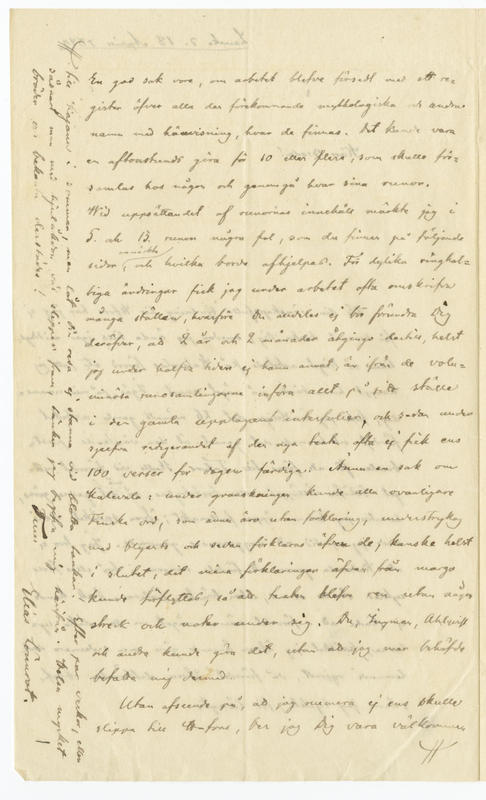 En god sak vore, om arbetet blefve försedt med ett re-
gister öfver alla der förekommande mythologiska och andra
namn med hänvisning, hvar de finnas. Det kunde vara
en aftonstunds göra för 10 eller flera, som skulle för-
samlas hos någon och genomgå hvar sina runor.
Wid uppsättandet af runornas innehåll märkte jag i
5. och 13. runon några fel, som du finner på följande
sidor, och hvilka borde afhjelpas. För dylika
ändringar fick jag under arbetet ofta omskrifva
många ställen, hvarföre Du ej bör förundra Dig
deröfver, att 2 år och 2 månader åtgingo dertill, helst
jag under halfva tiden ej hann annat, än ifrån de volu-
minösa runosamlingarne införa allt på sitt ställe
i den gamla upplagans interfolier, och sedan under
sjelfva redigerandet af den nya texten ofta ej fick ens
100 verser för dagen färdiga. Ännu en sak om
Kalevala: under granskningen kunde alla ovanligare
Finska ord, som ännu äro utan förklaring, understrykas
med blyerts och sedan förklaras äfven de, kanske helst
i slutet, dit mina förklaringar äfven från margo
kunde förflyttas, så att texten blefve ren utan några
streck och noter under sig. Du, Ingman, Ahlqvist
och andra kunde göra det, utan att jag mer behöfde
befatta mig dermed.
Utan afseende på, att jag numera ej ens skulle
slippa till H:fors, ber jag Dig vara välkommen
till Kajana i sommar, men låt Din resa ej stanna vid blotta tanken! Efter par veckor, eller
sådant, men med hjul slippa fram, tänker jag begifva mig härifrån. Helsa mycket
bröder och bekanta derstädes!
Tuus
Elias Lönnrot.